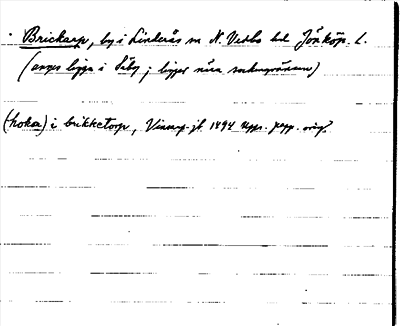 · Brickarp, by i Linderås sn N. Vedbo hd Jönköp. L.
(anges ligga i Säby ; ligger nära sockengränsen)
(hokon) i brikketorp, Vinarp. jb 1494 Upps. papp. orig.